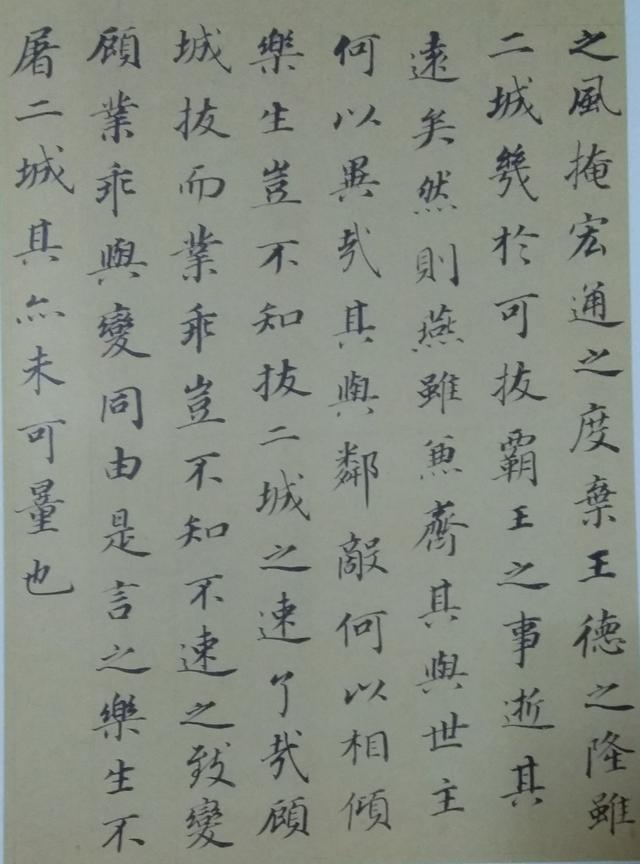 之風掩宏通之度棄王德之隆雖
二城幾於可拔霸王之事逝其
遠矣然則燕雖兼齊其與世主
何以異哉其與鄰敵何以相傾
樂生豈不知拔二城之速了哉顧
城拔而業乖豈不知不速之致變
顧業乖與變同由是言之樂生不
屠二城其亦未可量也